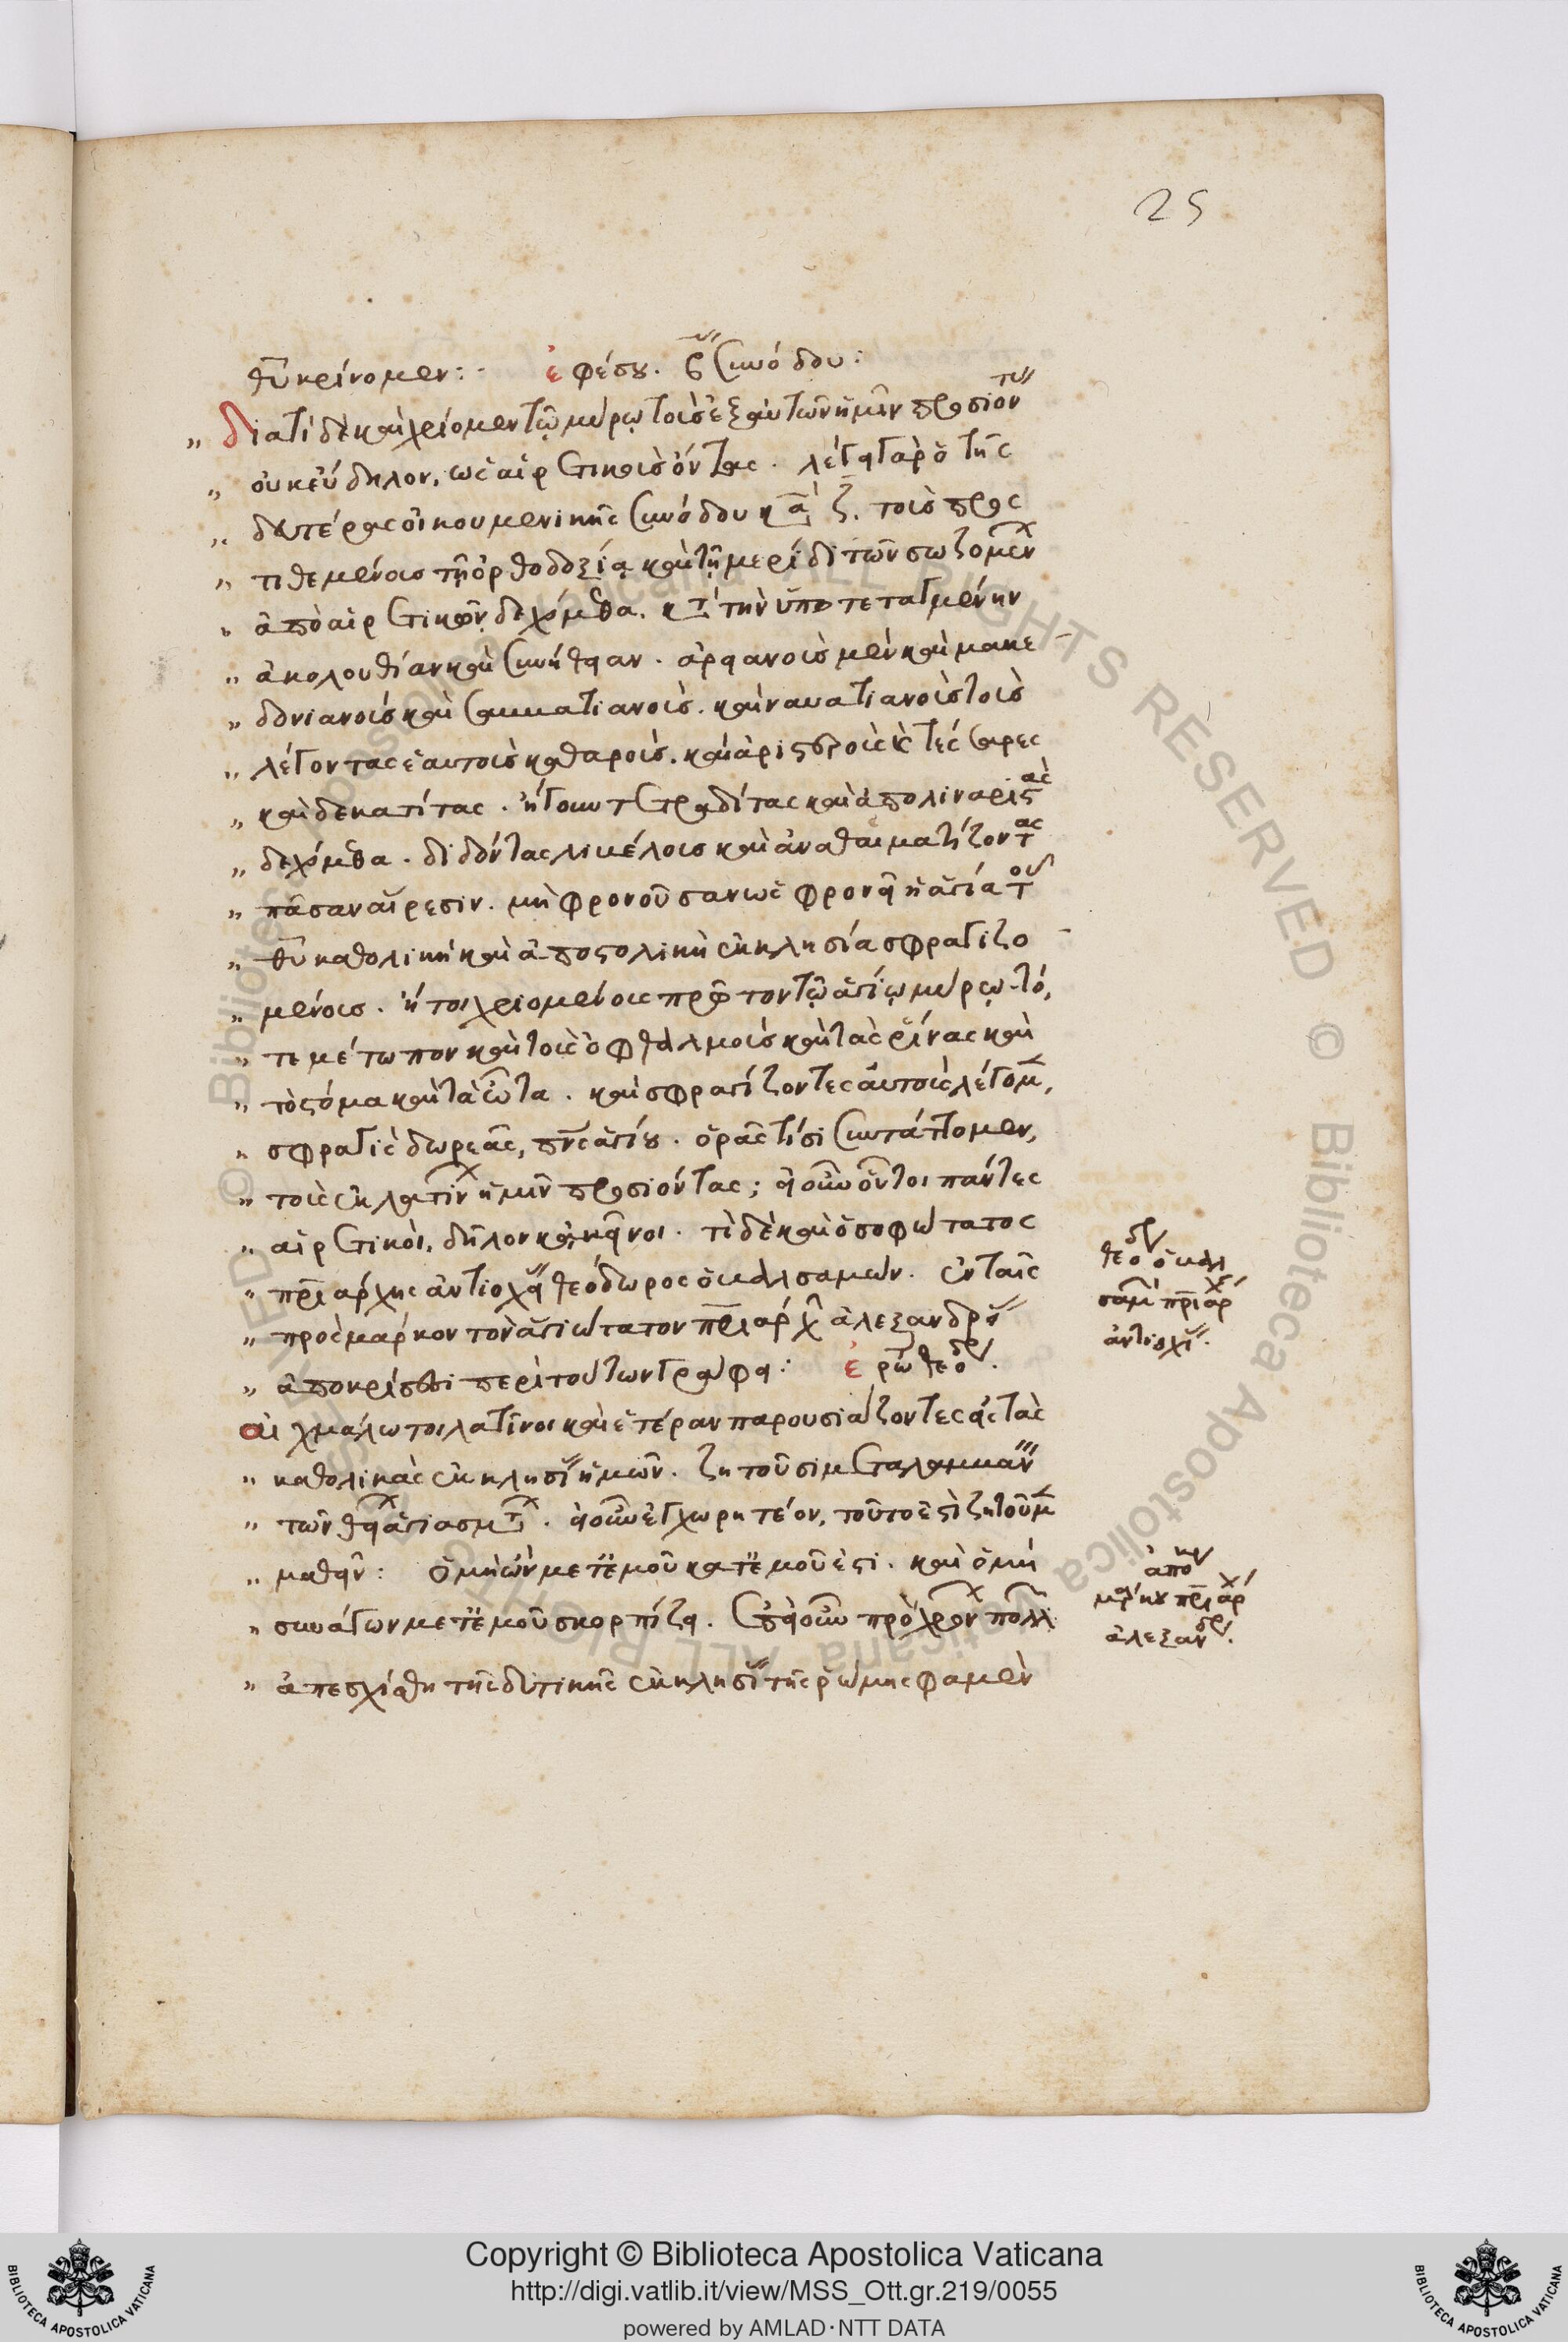 25
θῦ κρίνομεν: ἐφέσου. συνόδου:
διατί δὲ καὶ χρίομεν τῷ μύρῳ τοὺς ἐξ αὐτῶν ἡμῖν προσιόντας
οὐκ εὔδηλον, ὡς αἱρετικοὺς ὄντας. λέγει γὰρ ὁ τῆς
δευτέρας οἰκουμενικῆς συνόδου κανὼν ζ. τοὺς προς
τιθεμένους τῇ ὀρθοδοξίᾳ καὶ τῇ μερίδι τῶν σωζομένων
ἀπὸ αἱρετικῶν δεχόμεθα. κατὰ τὴν ὑποτεταγμένην
ἀκολουθίαν καὶ συνήθειαν. ἀρειανοὺς μὲν καὶ μακε
δονιανοὺς καὶ σαββατιανοὺς. καὶ ναυατιανοὺς τοὺς
λέγοντας ἑαυτοὺς καθαροὺς. καὶ ἀριστεροὺς
καὶ δεκατίτας. ἤγουν τετραδίτας καὶ ἀπολιναριστὰς
δεχόμεθα. διδόντας λιβέλους καὶ ἀναθεματίζοντας
πᾶσαν αἵρεσιν. μὴ φρονοῦσαν ὡς φρονεῖ ἡ ἁγία τοῦ
θῦ καθολικὴ καὶ ἀποστολικὴ ἐκκλησία σφραγιζο
μένους. ἤτοι χριομένους πρῶτον τῷ ἁγίῳ μύρῳ τό,
τε μέτωπον καὶ τοὺς ὀφθαλμοὺς καὶ τὰς ῥίνας καὶ
τὸ στόμα καὶ τὰ ὦτα. καὶ σφραγίζοντες αὐτοὺς λέγομεν,
σφραγὶς δωρεᾶς, πνς ἁγίου. ὁρᾷς τίσι συντάττομεν,
τοὺς ἐκ λατίνων ἡμῖν προσιόντας; εἰ οὖν οὗτοι πάντες
αἱρετικοὶ, δῆλον κἀκεῖνοι. τί δὲ καὶ ὁ σοφώτατος
πριάρχης ἀντιοχείας θεόδωρος ὁ βαλσαμὼν. ἐν ταῖς
πρὸς μάρκον τὸν ἁγιώτατον πριάρχην ἀλεξανδρείας
ἀποκρίσεσι περὶ τούτων γράφει: ἐρώτησις
αἰχμάλωτοι λατῖνοι καὶ ἑτέραν παρουσιάζοντες εἰς τὰς
καθολικὰς ἐκκλησίας ἡμῶν. ζητοῦσι μεταλαμβάνειν
τῶν θείων ἁγιασμάτων. εἰ οὖν ἐγχωρητέον, τοῦτο ἐστὶ ζητοῦμεν
μαθεῖν: ὁ μὴ ὢν μετ' ἐμοῦ κατ' ἐμοῦ ἐστι. καὶ ὁ μὴ
συνάγων μετ' ἐμοῦ σκορπίζει. ἐπεὶ οὖν πρὸ χρόνων πολλῶν
ἀπεσχίσθη τῆς δυτικῆς ἐκκλησίας τῆς ῥώμης φαμὲν
θεοδώ ὁ βαλ
σαμὼ πριάρχ
ἀντιοχεί.
ἀπὸ
μάρκου πριάρχ
ἀλεξανδρ.
Copyright © Biblioteca Apostolica Vaticana
http://digi.vatlib.it/view/MSS_Ott.gr.219/0055
powered by AMLAD·NTT DATA
BIBLIOTECA APOSTOLICA VATICANA
BIBLIOTECA APOSTOLICA VATICANA